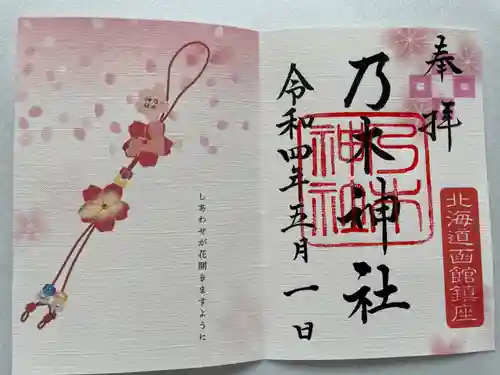 奉拝
北海道函館鎮座
乃木神社
乃木
神社
令和四年五月一日
しあわせが花開きますように